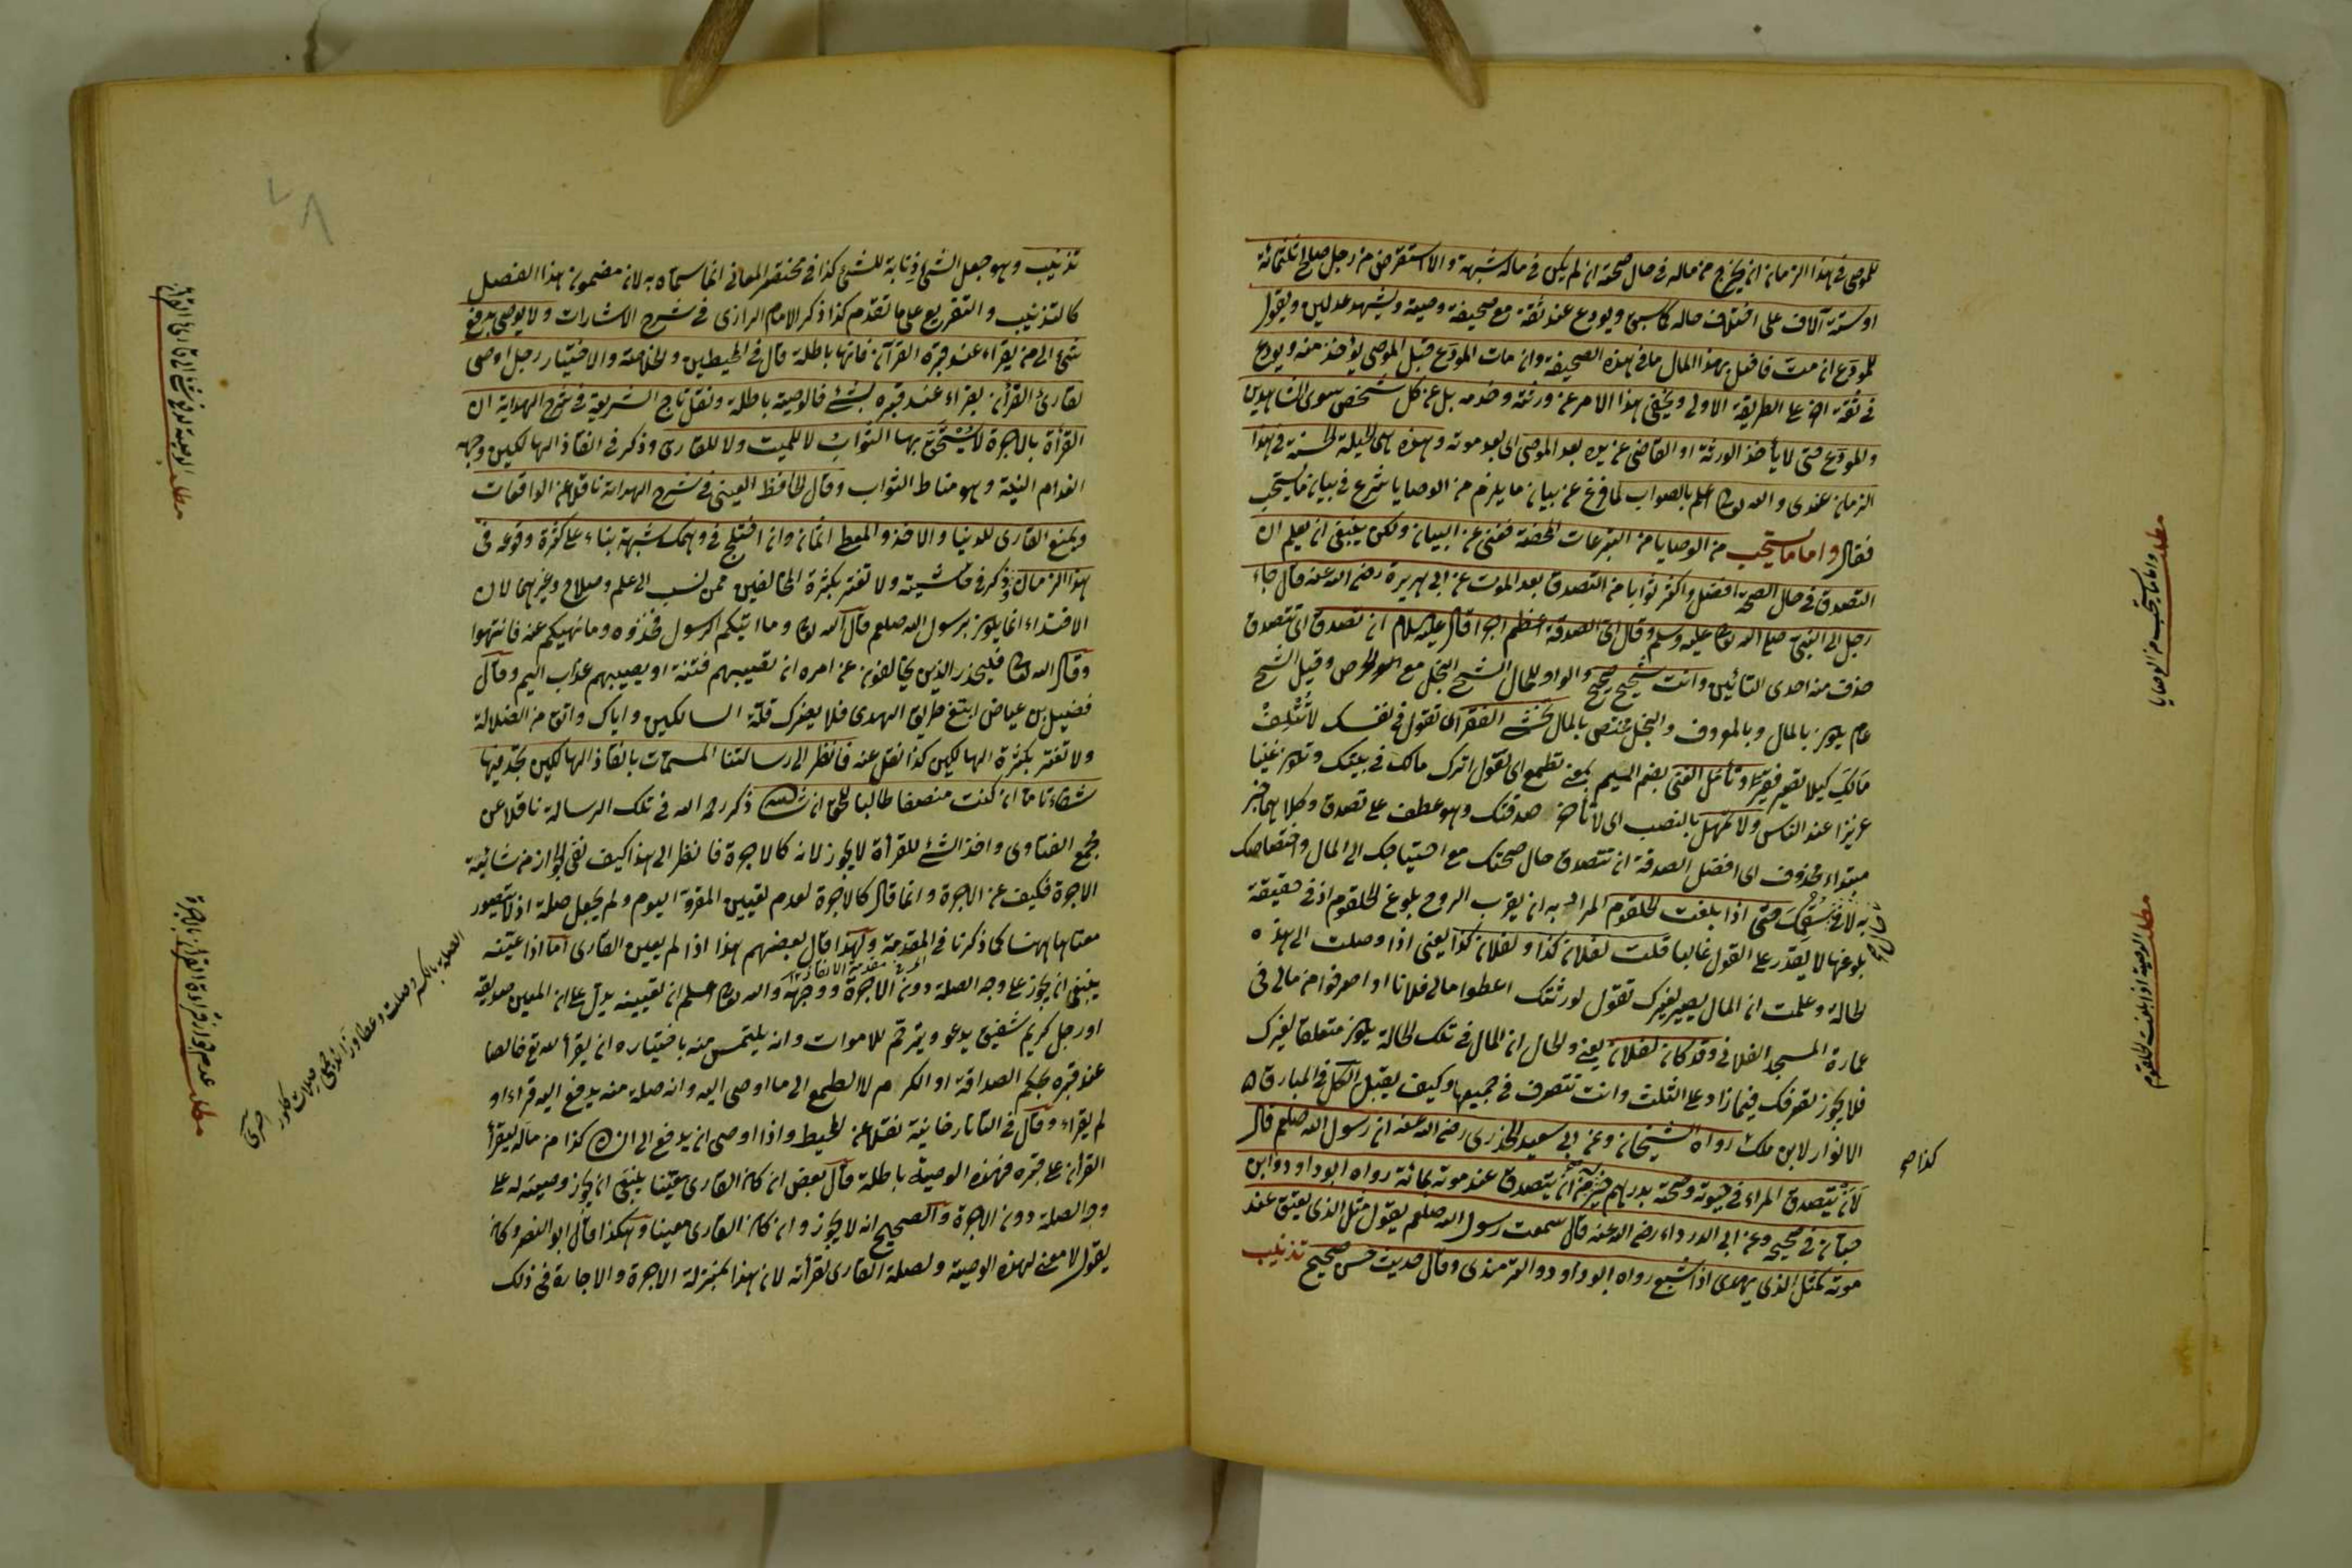 للموصى فى هذا الزمان ان يخرج من ماله فى حال صحته ان لم يكن فى ماله شبهة والا استقرض من رجل صالح ثلثمائة
او ستة آلاف على اختلاف حاله كما سبق ويودع عند ثقة مع صحيفة وصيته ويشهد عدلين ويقول
للمودع ان مت فافعل بهذا المال ما فى هذه الصحيفة وان مات المودع قبل الموصى يؤخذ منه ويودع
فى ثقة اخر على الطريقة الاولى ويخفى هذا الامر عن ورثته وخدمه بل عن كل شخص سوى الشاهدين
والمودع حتى لا يأخذ الورثة او القاضى من يده بعد الموصى اى بعد موته وهذه هى الحيلة الحسنة فى هذا
الزمان عندى والله تعالى اعلم بالصواب لما فرغ عن بيان ما يلزم من الوصايا شرع فى بيان ما يستحب
فقال واما ما يستحب من الوصايا من التبرعات المحضة فغنى عن البيان ولكن ينبغى ان يعلم ان
التصدق فى حال الصحة افضل واكثر ثوابا من التصدق بعد الموت عن ابى هريرة رضى الله عنه قال جاء
رجل الى النبى صلى الله تعالى عليه وسلم وقال اى الصدقة اعظم اجرا قال عليه السلام ان تصدق اى تتصدق
حذف منه احدى التائين وانت شحيح صحيح والواو للحال الشح البخل مع الحرص وقيل الشح
عام يكون بالمال وبالمعروف والبخل مختص بالمال تخشى الفقر اى تقول فى نفسك لا تتلف
مالك كيلا تصير فقيرا وتأمل الغنى بضم الميم بمعنى تطمع اى تقول اترك مالك فى بيتك وتكون غنيا
عزيزا عند الناس ولا تمهل بالنصب اى لا تأخر صدقتك وهو عطف على تصدق وكلاهما خبر
مبتداء محذوف اى افضل الصدقة ان تتصدق حال صحتك مع احتياجك الى المال واختصاصك
به لا فى سقمك حتى اذا بلغت الحلقوم المراد به ان يقرب الروح بلوغ الحلقوم اذ فى حقيقة
بلوغها لا يقدر على القول غالبا قلت لفلان كذا ولفلان كذا يعنى اذا وصلت الى هذه
الحالة وعلمت ان المال يصير لغيرك تقول لورثتك اعطوا مالى فلانا او اصرفوا من مالى فى
عمارة المسجد الفلانى وقد كان لفلان يعنى والحال ان المال فى تلك الحالة يكون متعلقا لغيرك
فلا يجوز تصرفك فيما زاد على الثلث وانت تتصرف فى جميعها وكيف يقبل الكل فى المبارق
الانوار لابن ملك رواه الشيخان وعن ابى سعيد الخدرى رضى الله عنه ان رسول الله صلعم قال
لان يتصدق المراء فى حيوته وصحته بدرهم خير من ان يتصدق عند موته بمائة رواه ابو داود وابن
حبان فى صحيحه وعن ابى الدرداء رضى الله عنه قال سمعت رسول الله صلعم يقول مثل الذى يعتق عند
موته كمثل الذى يهدى اذا شبع رواه ابو داود والترمذى وقال حديث حسن صحيح تذنيب
مطلب واما ما يستحب من الوصايا
مطلب الوصية اذا بلغت الحلقوم
كذا صح
تذنيب وهو جعل الشئ ذنابة للشئ كذا فى مختصر المعانى انما سماه به لان مضمون هذا الفصل
كالتذنيب والتفريع على ما تقدم كذا ذكر الامام الرازى فى شرح الاشارات ولا يوصى بدفع
شئ الى من يقراء عند قبره القرآن فانها باطلة قال فى المحيطين والخلاصة والاختيار رجل اوصى
لقارئ القرأن يقراء عند قبره بشئ فالوصية باطلة ونقل تاج الشريعة فى شرح الهداية ان
القرأة بالاجرة لا يستحق بها الثواب لا للميت ولا للقارى وذكر فى انقاذ الهالكين وجهه
انعدام النية وهو مناط الثواب وقال الحافظ العينى فى شرح الهداية ناقلا عن الواقعات
ويمنع القارى للدنيا والاخذ والمعطى اثمان وان اختلج فى وهمك شبهة بناء على كثرة وقوعه فى
هذا الزمان ذكر فى حاشيته ولا تغتر بكثرة المخالفين ممن نسب الى علم وصلاح وغيرهما لان
الاقتداء انما يكون برسول الله صلعم قال الله تعالى وما اتيكم الرسول فخذوه وما نهيكم عنه فانتهوا
وقال الله تعالى فليحذر الذين يخالفون عن امره ان تصيبهم فتنة او يصيبهم عذاب اليم وقال
فضيل بن عياض ابتغ طريق الهدى فلا يضرك قلة السالكين واياك واتق من الضلالة
ولا تغتر بكثرة الهالكين كذا نقل عنه فانظر الى رسالتنا المسمات بانقاذ الهالكين تجد فيها
شفاء تاما ان كنت منصفا طالبا للحق ان شاء الله ذكر رحمه الله فى تلك الرسالة ناقلا عن
مجمع الفتاوى واخذ الشئ للقرأة لا يجوز لانه كالاجرة فانظر الى هذا كيف نفى الجواز من شائبة
الاجرة فكيف عن الاجرة وانما قال كالاجرة لعدم تعيين المقروة اليوم ولم يجعل صلة اذ لا يتصور
معناها ههنا كما ذكرنا فى المقدمة ولهذا قال بعضهم هذا اذا لم يعين القارى اما اذا عينه
ينبغى ان يجوز على وجه الصلة دون الاجرة ووجهه والله تعالى اعلم ان تعيينه يدل على ان المعين صديقه
او رجل كريم شفيق يدعو ويترحم للاموات وانه يلتمس منه باختياره ان يقرأ لله تع خالصا
عند قبره بحكم الصداقة او الكرم لا لطمع الى ما اوصى اليه وانه صلة منه يدفع اليه قراء او
لم يقراء وقال فى التاتارخانية نقلا عن المحيط واذا اوصى ان يدفع الى انسان كذا من ماله ليقرأ
القرأن على قبره فهذه الوصية باطلة قال بعض ان كان القارى معينا ينبغى ان يجوز وصيته له على
وجه الصلة دون الاجرة والصحيح انه لا يجوز وان كان القارى معينا وهكذا قال ابو النصر وكان
يقول لا معنى لهذه الوصية ولصلة القارى لقرأته لان هذا بمنزلة الاجرة والاجارة فى ذلك
مطلب الوصية لدفع شئ الى من يقرأ القرآن
مطلب عدم جواز قراءة القرآن بالاجرة